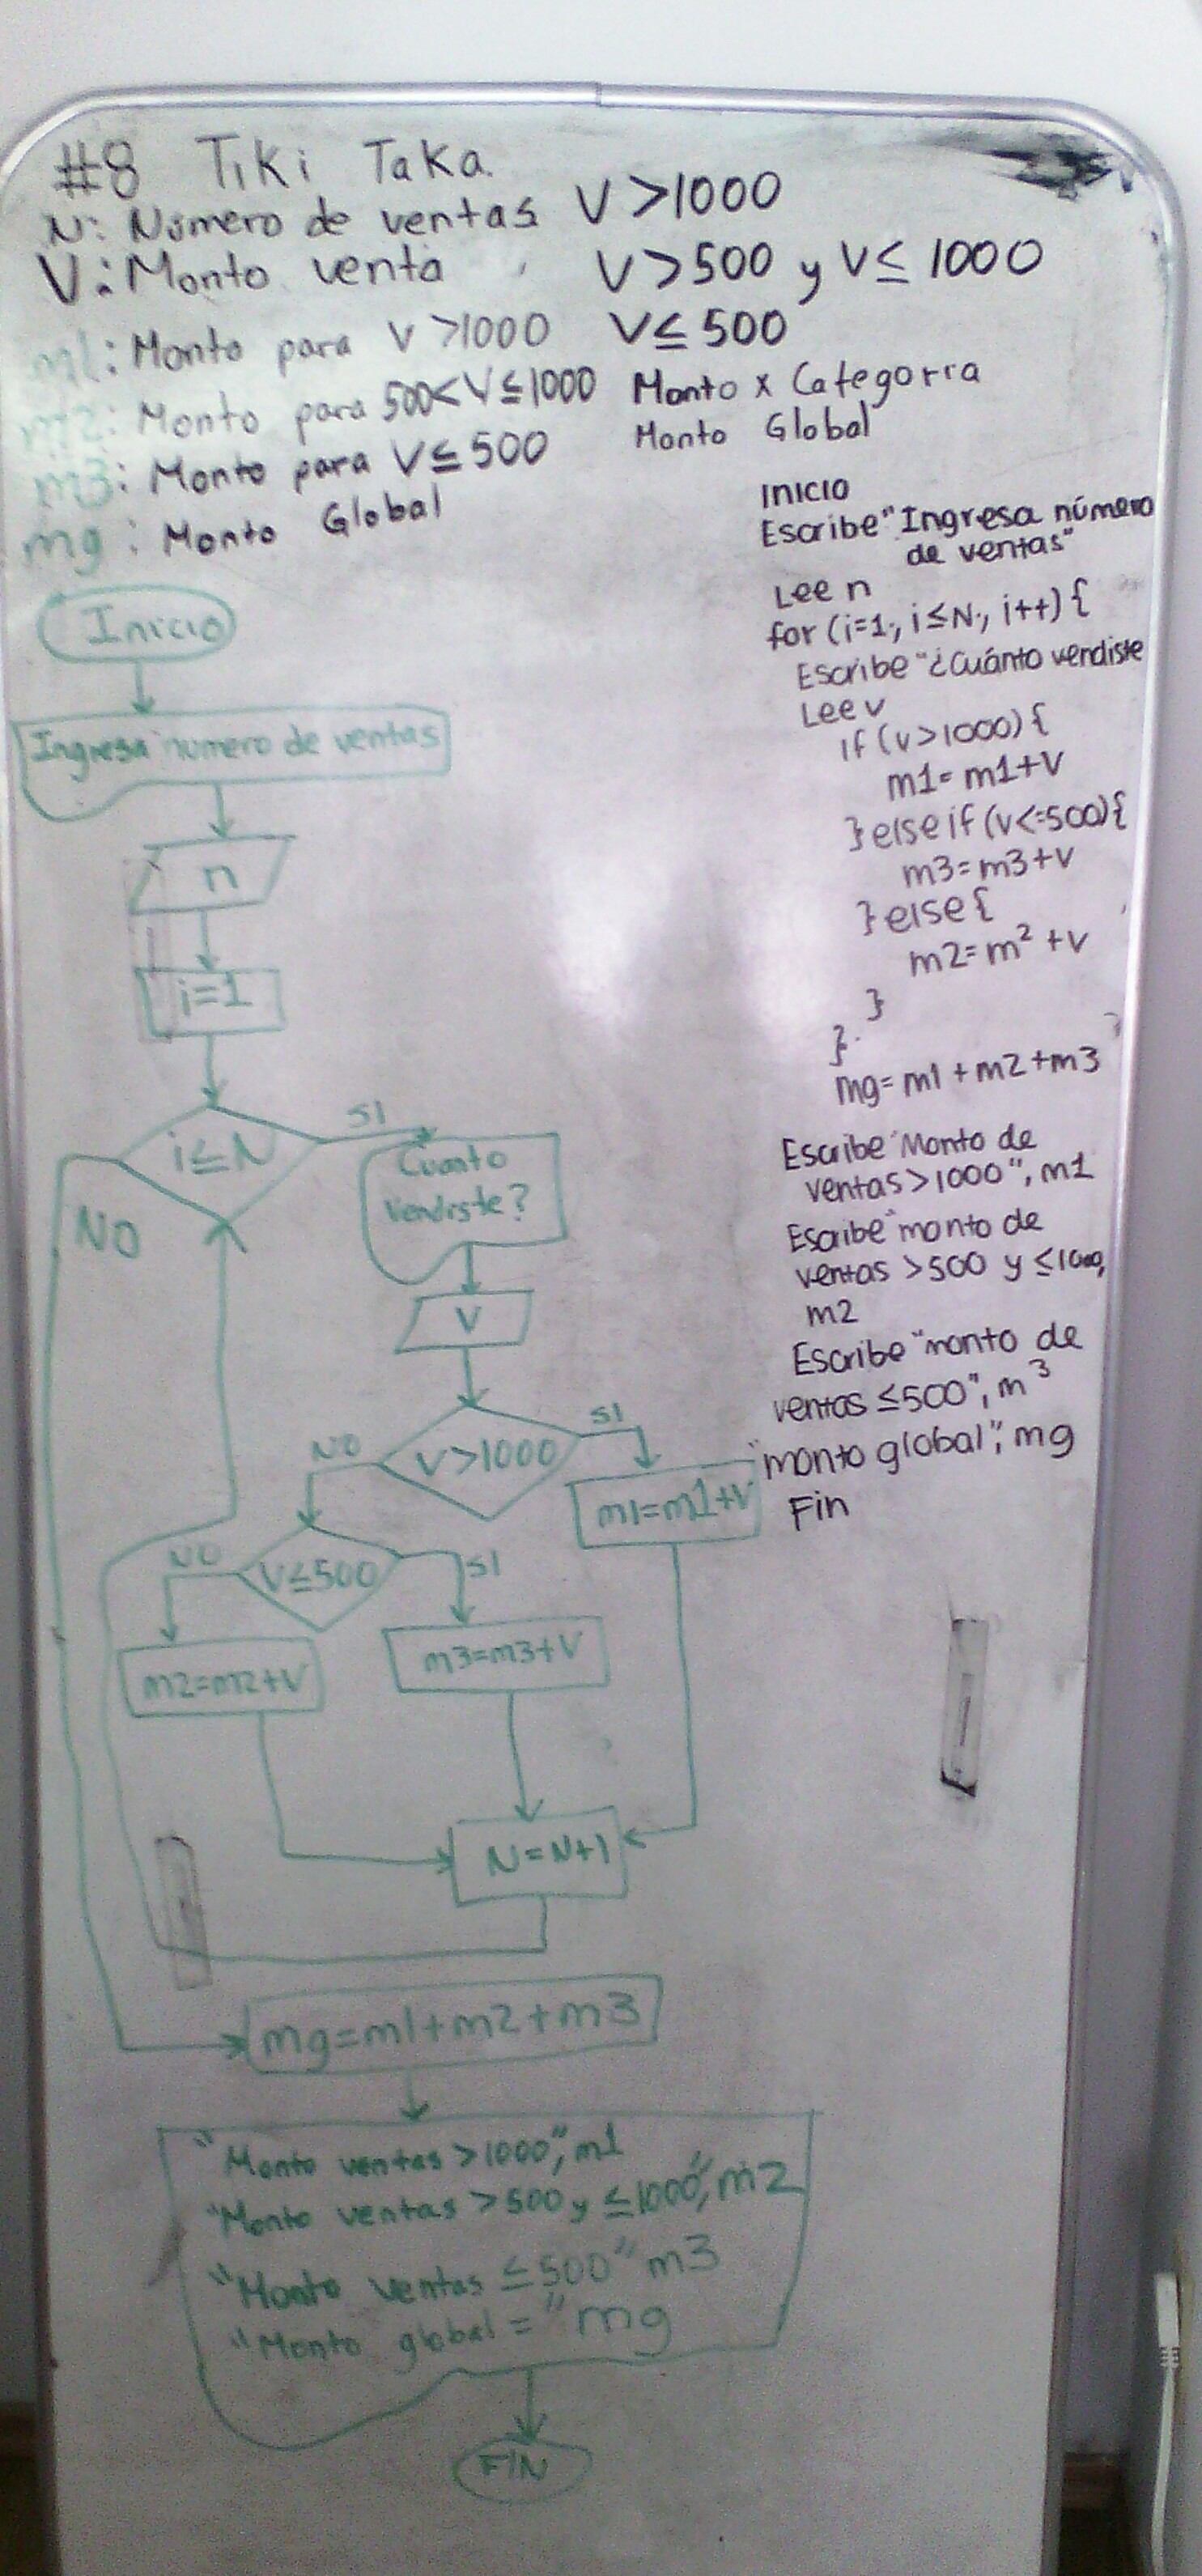 #8 Tiki Taka.
N: Número de ventas
V: Monto venta
m1: Monto para V >1000
m2: Monto para 500<V≤1000
m3: Monto para V≤500
mg: Monto Global
V >1000
V >500 y V≤ 1000
V≤ 500
Monto x Categoria
Monto Global
Inicio
Ingresa numero de ventas
n
i=1
i≤N
SI
NO
Cuanto
Vendiste?
V
V>1000
SI
NO
m1=m1+V
V≤500
NO
SI
m2=m2+V
m3=m3+V
N=N+1
mg=m1+m2+m3
"Monto ventas >1000", m1
"Monto ventas >500 y ≤1000", m2
"Monto ventas ≤500" m3
"Monto global = " mg
FIN
Inicio
Escribe "Ingresa número
de ventas"
Lee n
for (i=1; i≤N; i++) {
Escribe "¿Cuánto vendiste
Lee v
if (v>1000) {
m1= m1+V
} else if (v<=500){
m3=m3+v
} else {
m2=m² +v
}
}
mg= m1 +m2+m3
Escribe "Monto de
ventas>1000", m1
Escribe "monto de
ventas >500 y ≤1000,
m2
Escribe "monto de
ventas ≤500", m³
"monto global", mg
Fin